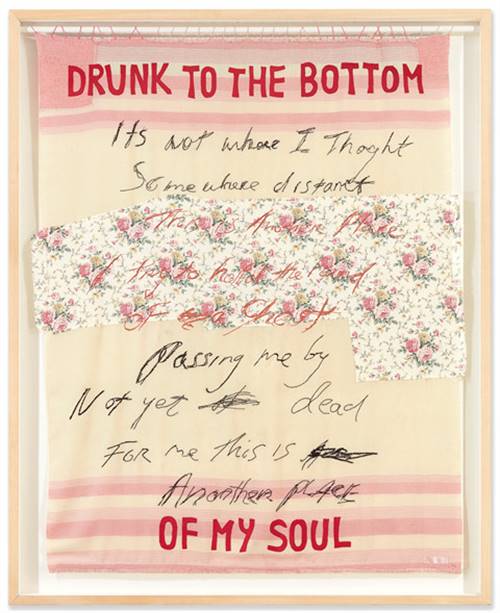 DRUNK TO THE BOTTOM
Its not where I Thoght
Somewhere distant
There is Another Place
I try to hold the hand
of a Ghost
Passing me by
Not yet dead
FOR me This is
Anonther place
OF MY SOUL